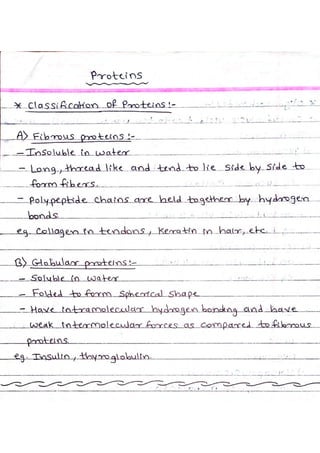 Proteins
* Classification of Proteins:-
A) Fibrous proteins:-
- Insoluble in water
- Long, thread like and tend to lie side by side to
form fibers.
- Polypeptide chains are held together by hydrogen
bonds
eg. Collagen in tendons, Kerratin in hair, etc.
B) Globular proteins:-
- Soluble in water
- Folded to form spherical shape
- Have intramolecular hydrogen bonding and have
weak intermolecular forces as compared to fibrous
proteins.
eg. Insulin, thyroglobulin